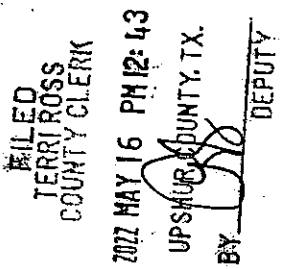 FILED
TERRI ROSS
COUNTY CLERK
2022 MAY 16 PM 12: 43
UPSHUR COUNTY. TX.
BY
DEPUTY